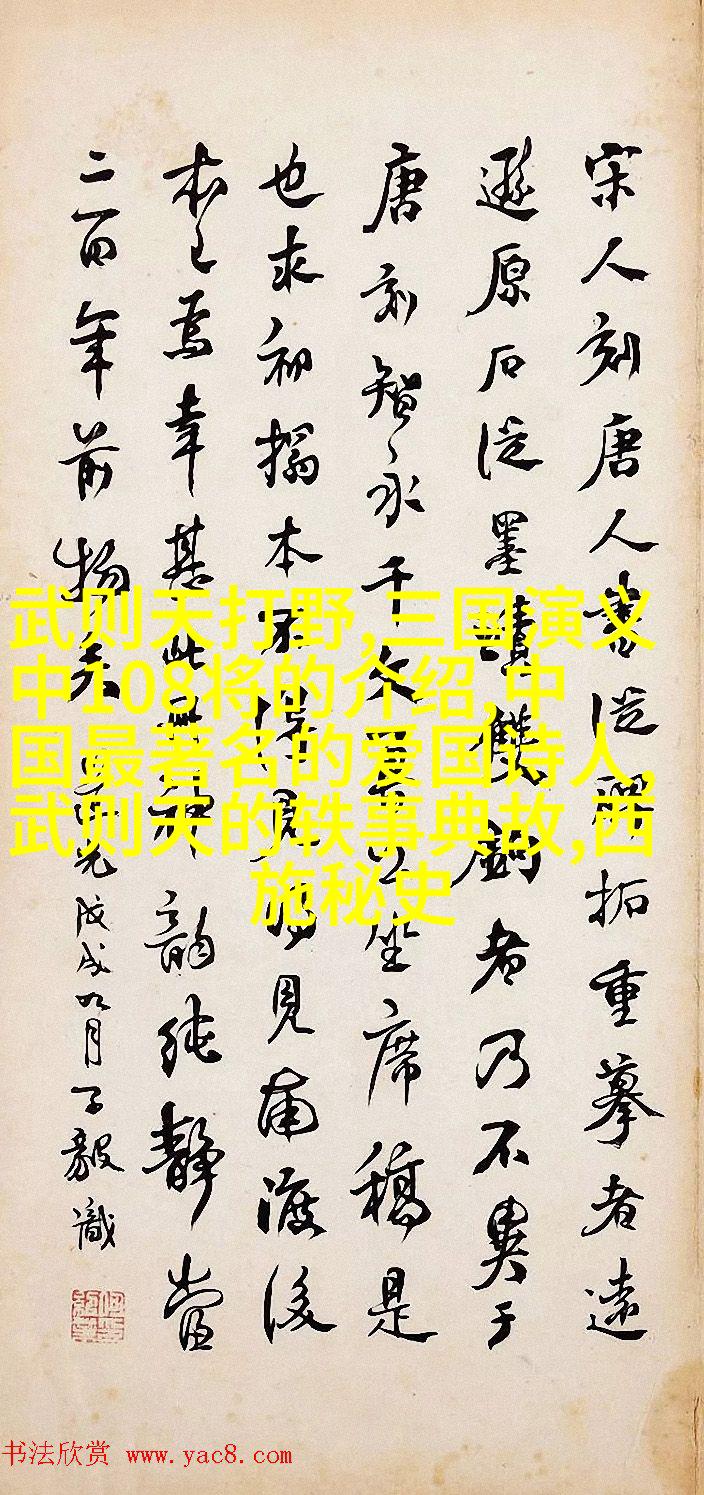 宋人刻唐人書從拓重摹者遠
遜原石從墨蹟雙鉤者乃不異于
唐刻智永千文坐席稿是
也求初搨本不得見得見南渡後
本已為幸甚此神韻純靜當
二百年前物矣
戊戌九月子毅識
武则天打野,三国演义
中108将的介绍,中
国最著名的爱国诗人,
武则天的轶事典故,西
施秘史
书法欣赏 www.yac8.com